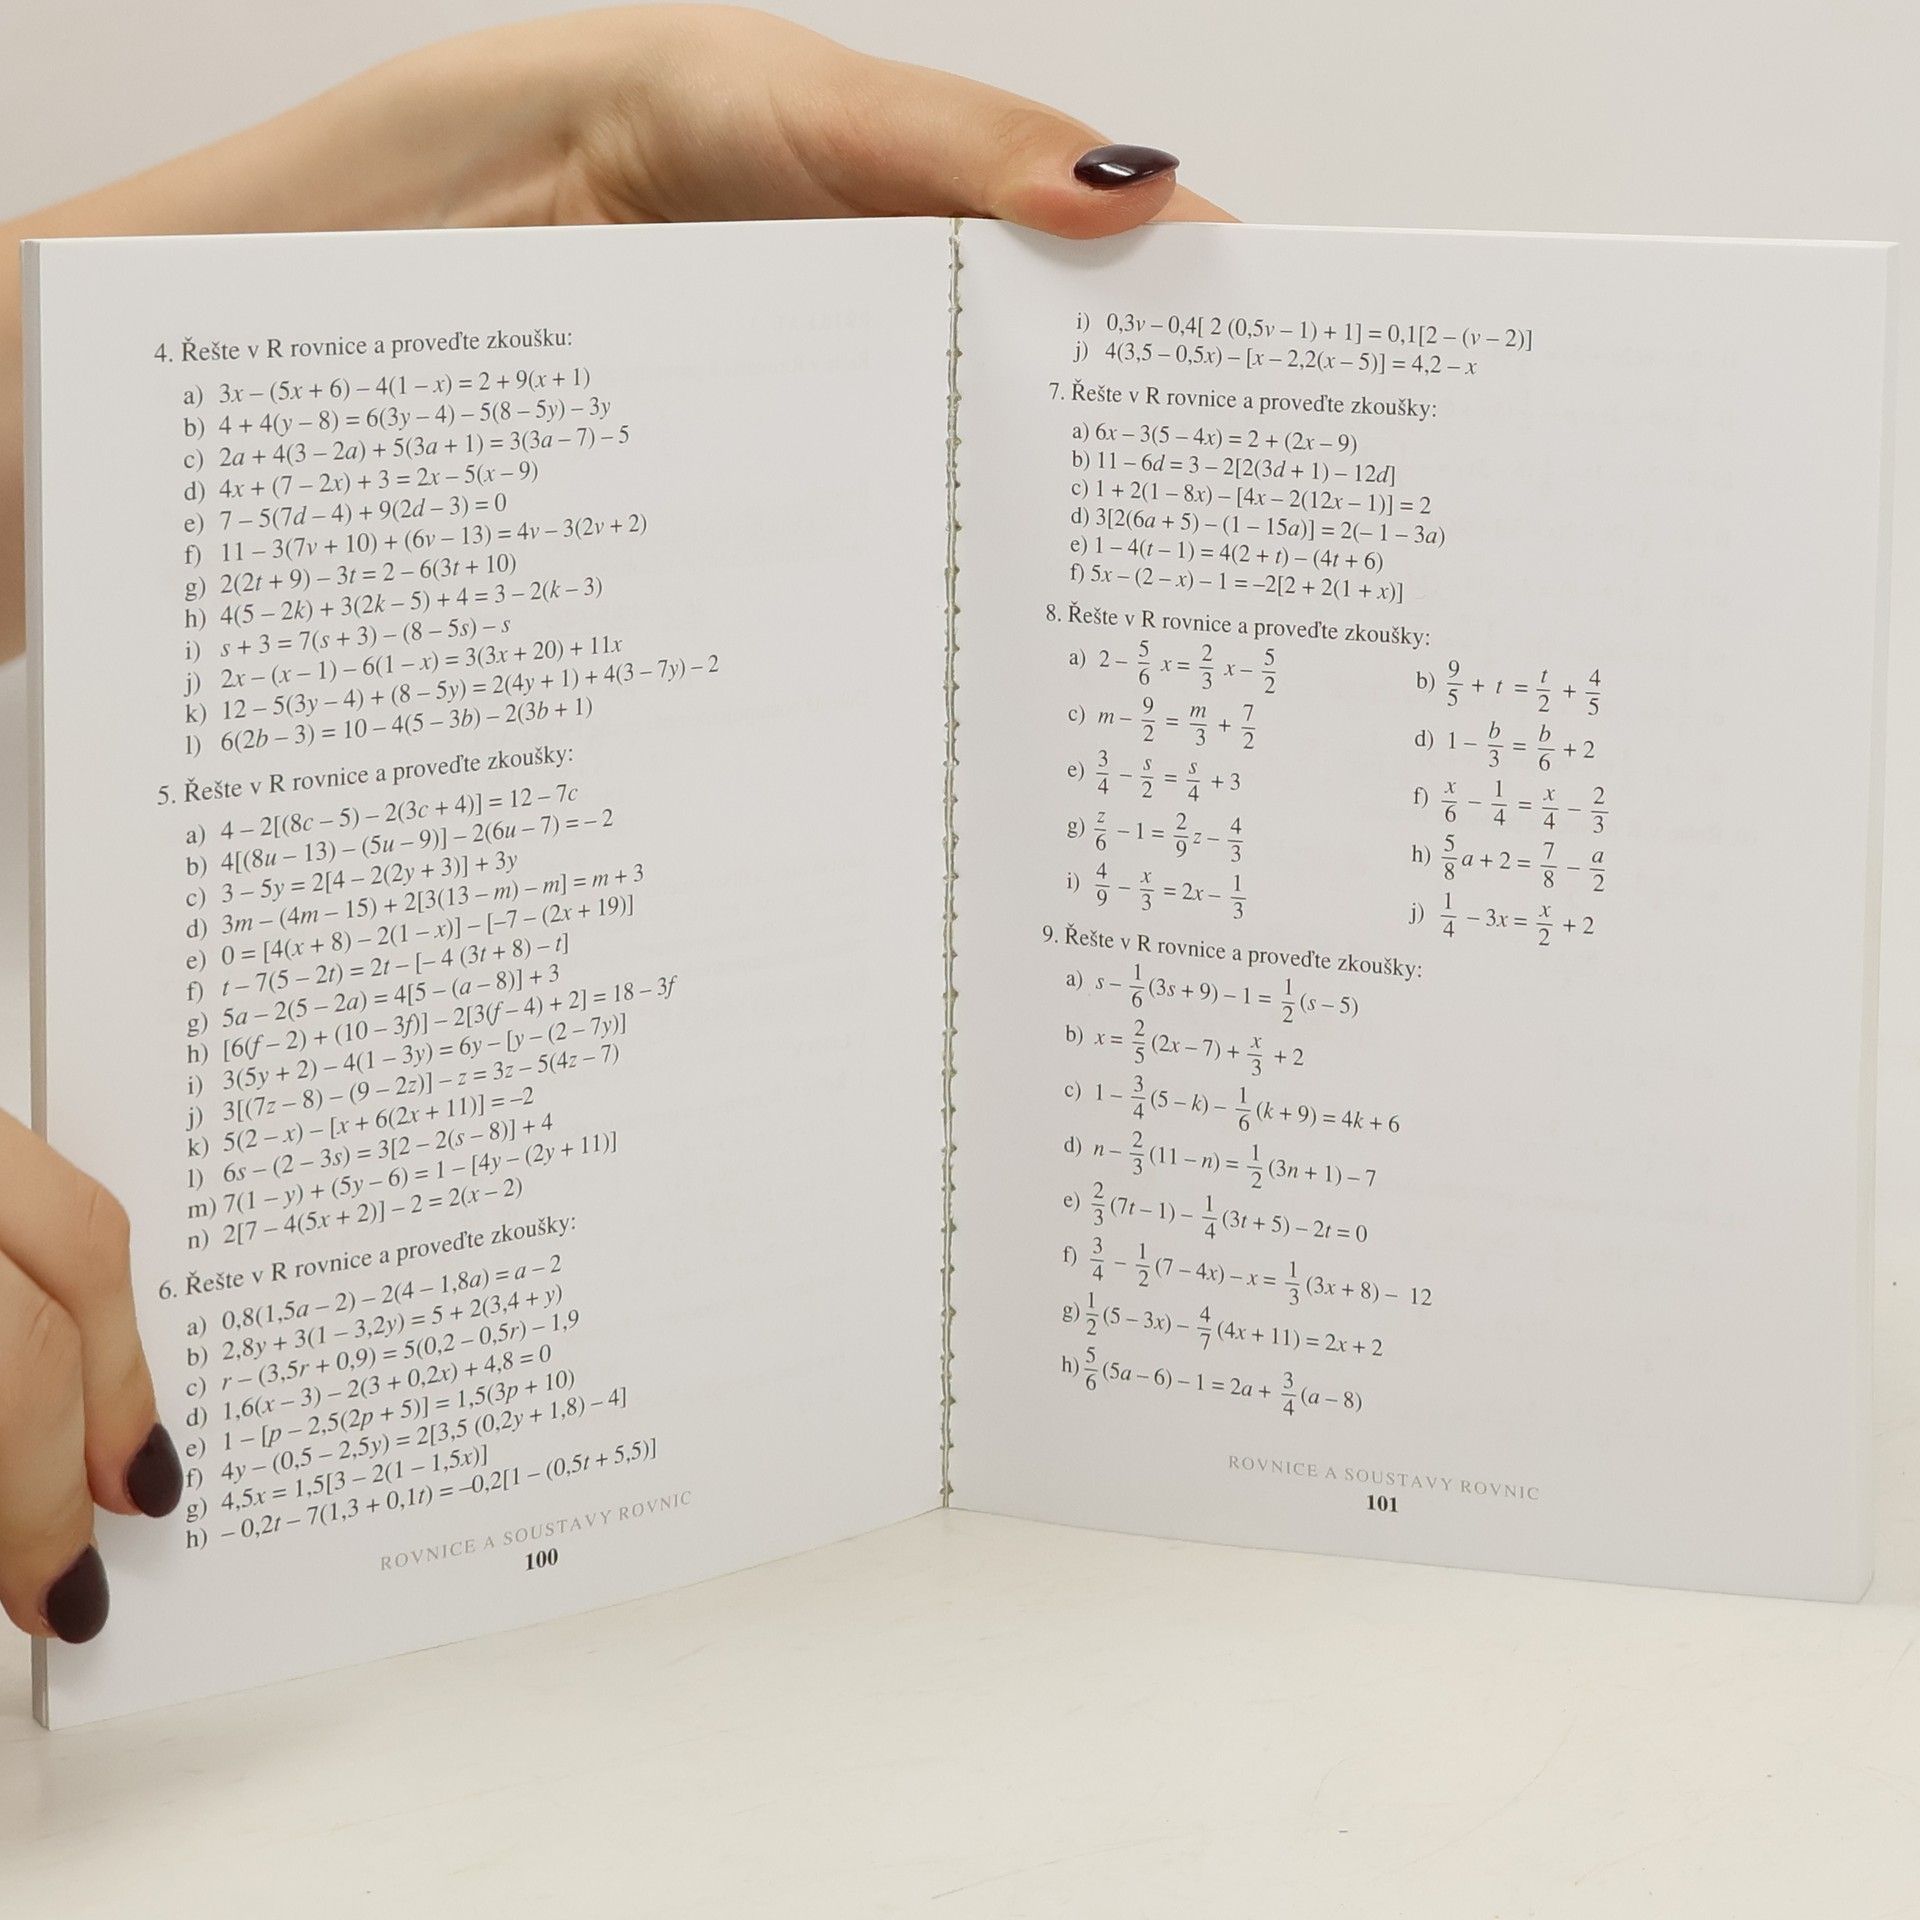 4. Řešte v R rovnice a proveďte zkoušku:
a) 3x – (5x + 6) – 4(1 – x) = 2 + 9(x + 1)
b) 4 + 4(y – 8) = 6(3y – 4) – 5(8 – 5y) – 3y
c) 2a + 4(3 – 2a) + 5(3a + 1) = 3(3a – 7) – 5
d) 4x + (7 – 2x) + 3 = 2x – 5(x – 9)
e) 7 – 5(7d – 4) + 9(2d – 3) = 0
f) 11 – 3(7v + 10) + (6v – 13) = 4v – 3(2v + 2)
g) 2(2t + 9) – 3t = 2 – 6(3t + 10)
h) 4(5 – 2k) + 3(2k – 5) + 4 = 3 – 2(k – 3)
i) s + 3 = 7(s + 3) – (8 – 5s) – s
j) 2x – (x – 1) – 6(1 – x) = 3(3x + 20) + 11x
k) 12 – 5(3y – 4) + (8 – 5y) = 2(4y + 1) + 4(3 – 7y) – 2
l) 6(2b – 3) = 10 – 4(5 – 3b) – 2(3b + 1)
5. Řešte v R rovnice a proveďte zkoušky:
a) 4 – 2[(8c – 5) – 2(3c + 4)] = 12 – 7c
b) 4[(8u – 13) – (5u – 9)] – 2(6u – 7) = – 2
c) 3 – 5y = 2[4 – 2(2y + 3)] + 3y
d) 3m – (4m – 15) + 2[3(13 – m) – m] = m + 3
e) 0 = [4(x + 8) – 2(1 – x)] – [–7 – (2x + 19)]
f) t – 7(5 – 2t) = 2t – [– 4 (3t + 8) – t]
g) 5a – 2(5 – 2a) = 4[5 – (a – 8)] + 3
h) [6(f – 2) + (10 – 3f)] – 2[3(f – 4) + 2] = 18 – 3f
i) 3(5y + 2) – 4(1 – 3y) = 6y – [y – (2 – 7y)]
j) 3[(7z – 8) – (9 – 2z)] – z = 3z – 5(4z – 7)
k) 5(2 – x) – [x + 6(2x + 11)] = –2
l) 6s – (2 – 3s) = 3[2 – 2(s – 8)] + 4
m) 7(1 – y) + (5y – 6) = 1 – [4y – (2y + 11)]
n) 2[7 – 4(5x + 2)] – 2 = 2(x – 2)
6. Řešte v R rovnice a proveďte zkoušky:
a) 0,8(1,5a – 2) – 2(4 – 1,8a) = a – 2
b) 2,8y + 3(1 – 3,2y) = 5 + 2(3,4 + y)
c) r – (3,5r + 0,9) = 5(0,2 – 0,5r) – 1,9
d) 1,6(x – 3) – 2(3 + 0,2x) + 4,8 = 0
e) 1 – [p – 2,5(2p + 5)] = 1,5(3p + 10)
f) 4y – (0,5 – 2,5y) = 2[3,5 (0,2y + 1,8) – 4]
g) 4,5x = 1,5[3 – 2(1 – 1,5x)]
h) – 0,2t – 7(1,3 + 0,1t) = –0,2[1 – (0,5t + 5,5)]
ROVNICE A SOUSTAVY ROVNIC
100
i) 0,3v – 0,4[ 2 (0,5v – 1) + 1] = 0,1[2 – (v – 2)]
j) 4(3,5 – 0,5x) – [x – 2,2(x – 5)] = 4,2 – x
7. Řešte v R rovnice a proveďte zkoušky:
a) 6x – 3(5 – 4x) = 2 + (2x – 9)
b) 11 – 6d = 3 – 2[2(3d + 1) – 12d]
c) 1 + 2(1 – 8x) – [4x – 2(12x – 1)] = 2
d) 3[2(6a + 5) – (1 – 15a)] = 2(– 1 – 3a)
e) 1 – 4(t – 1) = 4(2 + t) – (4t + 6)
f) 5x – (2 – x) – 1 = –2[2 + 2(1 + x)]
8. Řešte v R rovnice a proveďte zkoušky:
a) 2 – 5/6 x = 2/3 x – 5/2 b) 9/5 + t = t/2 + 4/5
c) m – 9/2 = m/3 + 7/2 d) 1 – b/3 = b/6 + 2
e) 3/4 – s/2 = s/4 + 3 f) x/6 – 1/4 = x/4 – 2/3
g) z/6 – 1 = 2/9 z – 4/3 h) 5/8 a + 2 = 7/8 – a/2
i) 4/9 – x/3 = 2x – 1/3 j) 1/4 – 3x = x/2 + 2
9. Řešte v R rovnice a proveďte zkoušky:
a) s – 1/6 (3s + 9) – 1 = 1/2 (s – 5)
b) x = 2/5 (2x – 7) + x/3 + 2
c) 1 – 3/4 (5 – k) – 1/6 (k + 9) = 4k + 6
d) n – 2/3 (11 – n) = 1/2 (3n + 1) – 7
e) 2/3 (7t – 1) – 1/4 (3t + 5) – 2t = 0
f) 3/4 – 1/2 (7 – 4x) – x = 1/3 (3x + 8) – 12
g) 1/2 (5 – 3x) – 4/7 (4x + 11) = 2x + 2
h) 5/6 (5a – 6) – 1 = 2a + 3/4 (a – 8)
ROVNICE A SOUSTAVY ROVNIC
101